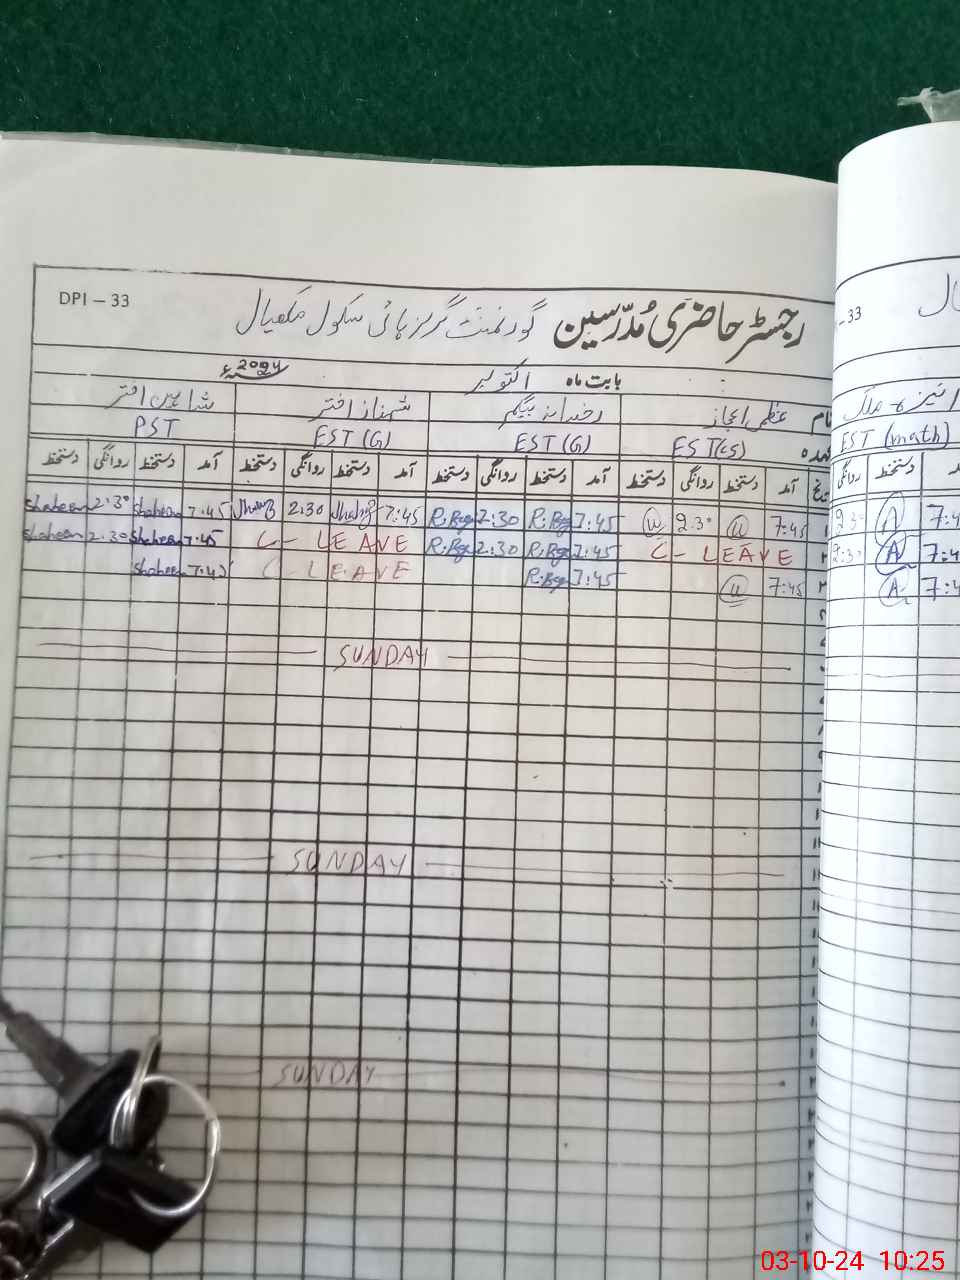 DPI – 33
رجسٹر حاضری مُدرّسین گورنمنٹ گرلز ہائی سکول مکھیال
– 33
بابت ماہ اکتوبر 2024ء
نام عظمیٰ اعجاز رخسانہ بیگم شہناز اختر شاہین اختر
عہدہ EST(CS) EST(G) EST(G) PST
EST (math)
آمد دستخط روانگی دستخط آمد دستخط روانگی دستخط آمد دستخط روانگی دستخط آمد دستخط روانگی دستخط
دستخط روانگی
Shaheen 2:30 Shaheen 7:45 2:30 7:45 R.Beg 2:30 R.Beg 7:45 2:30 7:45
Shaheen 2:30 Shaheen 7:45 C - LEAVE R.Beg 2:30 R.Beg 7:45 C - LEAVE
Shaheen 7:45 C LEAVE R.Beg 7:45 7:45
2:30 A 7:4
2:30 A 7:4
A 7:4
SUNDAY
SUNDAY
SUNDAY
03-10-24 10:25